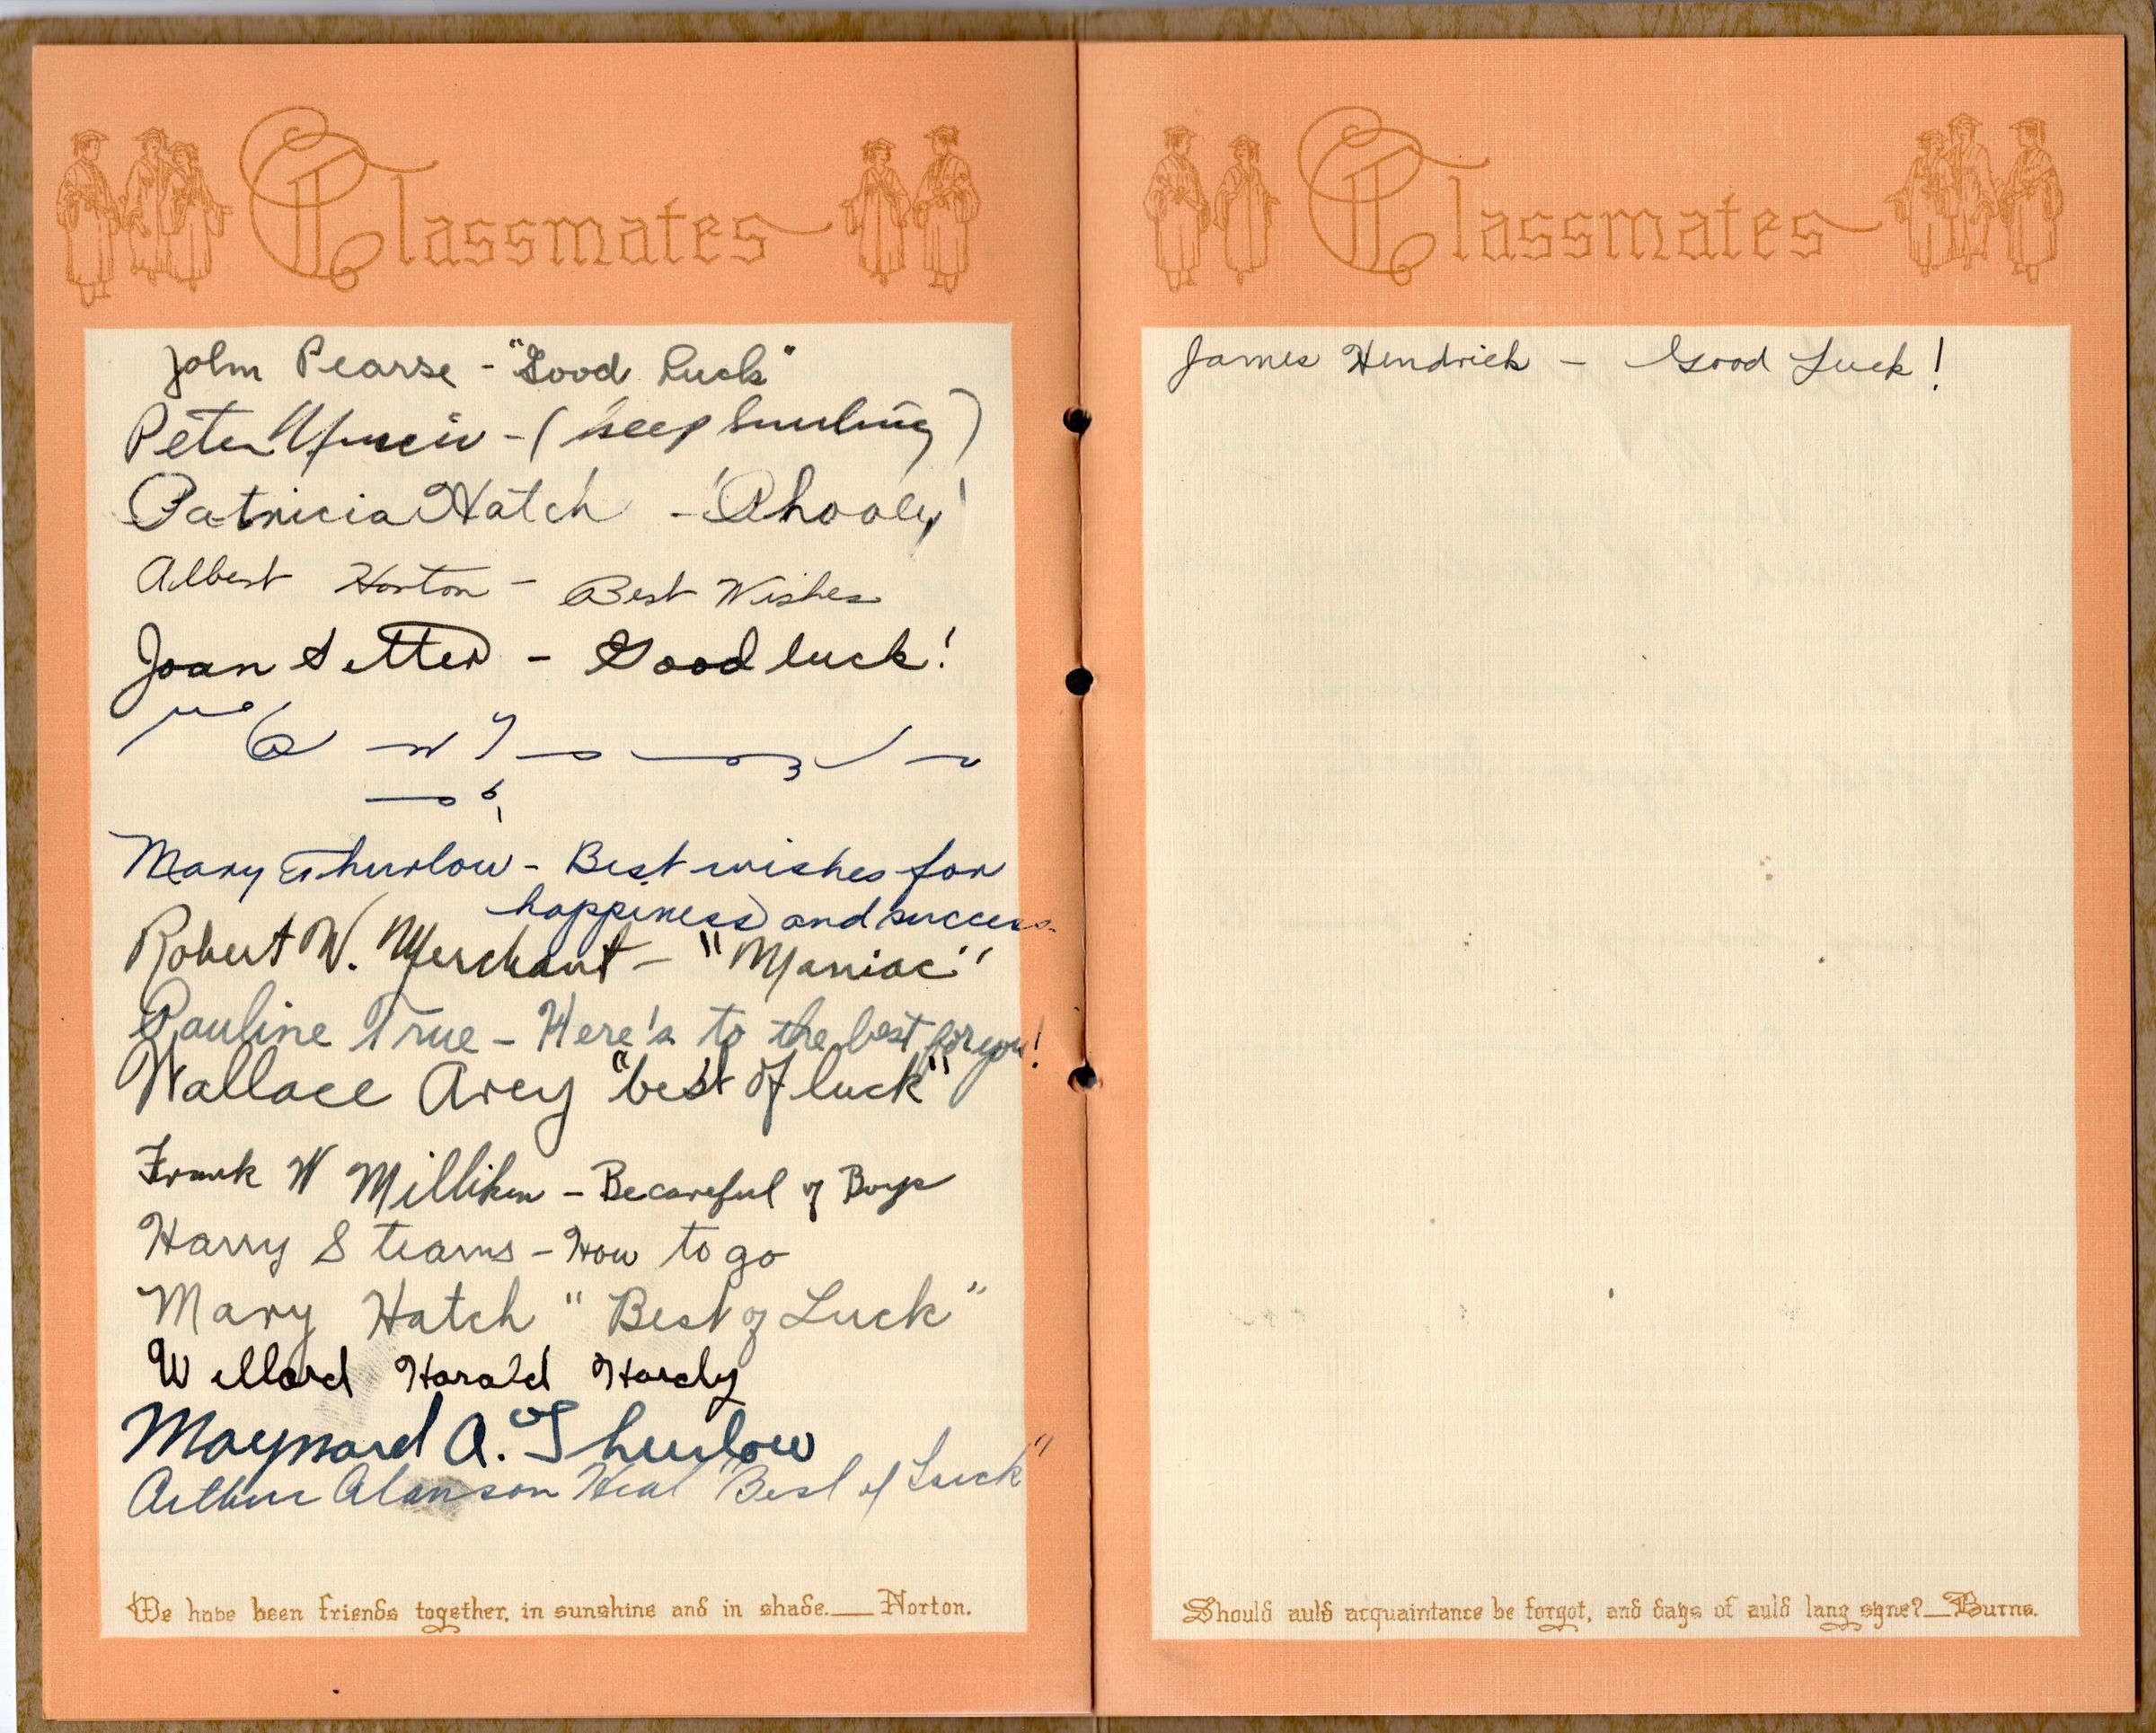 Classmates
John Pearse - "Good Luck"
Peter - (Keep Smiling)
Patricia Hatch - 'Phooey'
Albert Horton - Best Wishes
Joan Setter - Good luck!
Mary E Thurlow - Best wishes for
happiness and success.
Robert W. Merchant - "Maniac"
Pauline True - Here's to the best for you!
Wallace Arey "best of luck"
Frank W Milliken - Be careful of Boys
Harry Stearns - How to go
Mary Hatch "Best of Luck"
Willard Harald Hardy
Maynard A. Thurlow
Arthur Alanson Heal "Best of Luck"
We have been friends together, in sunshine and in shade.__Norton.
Classmates
James Hendrick - Good Luck!
Should auld acquaintance be forgot, and days of auld lang syne?__Burns.